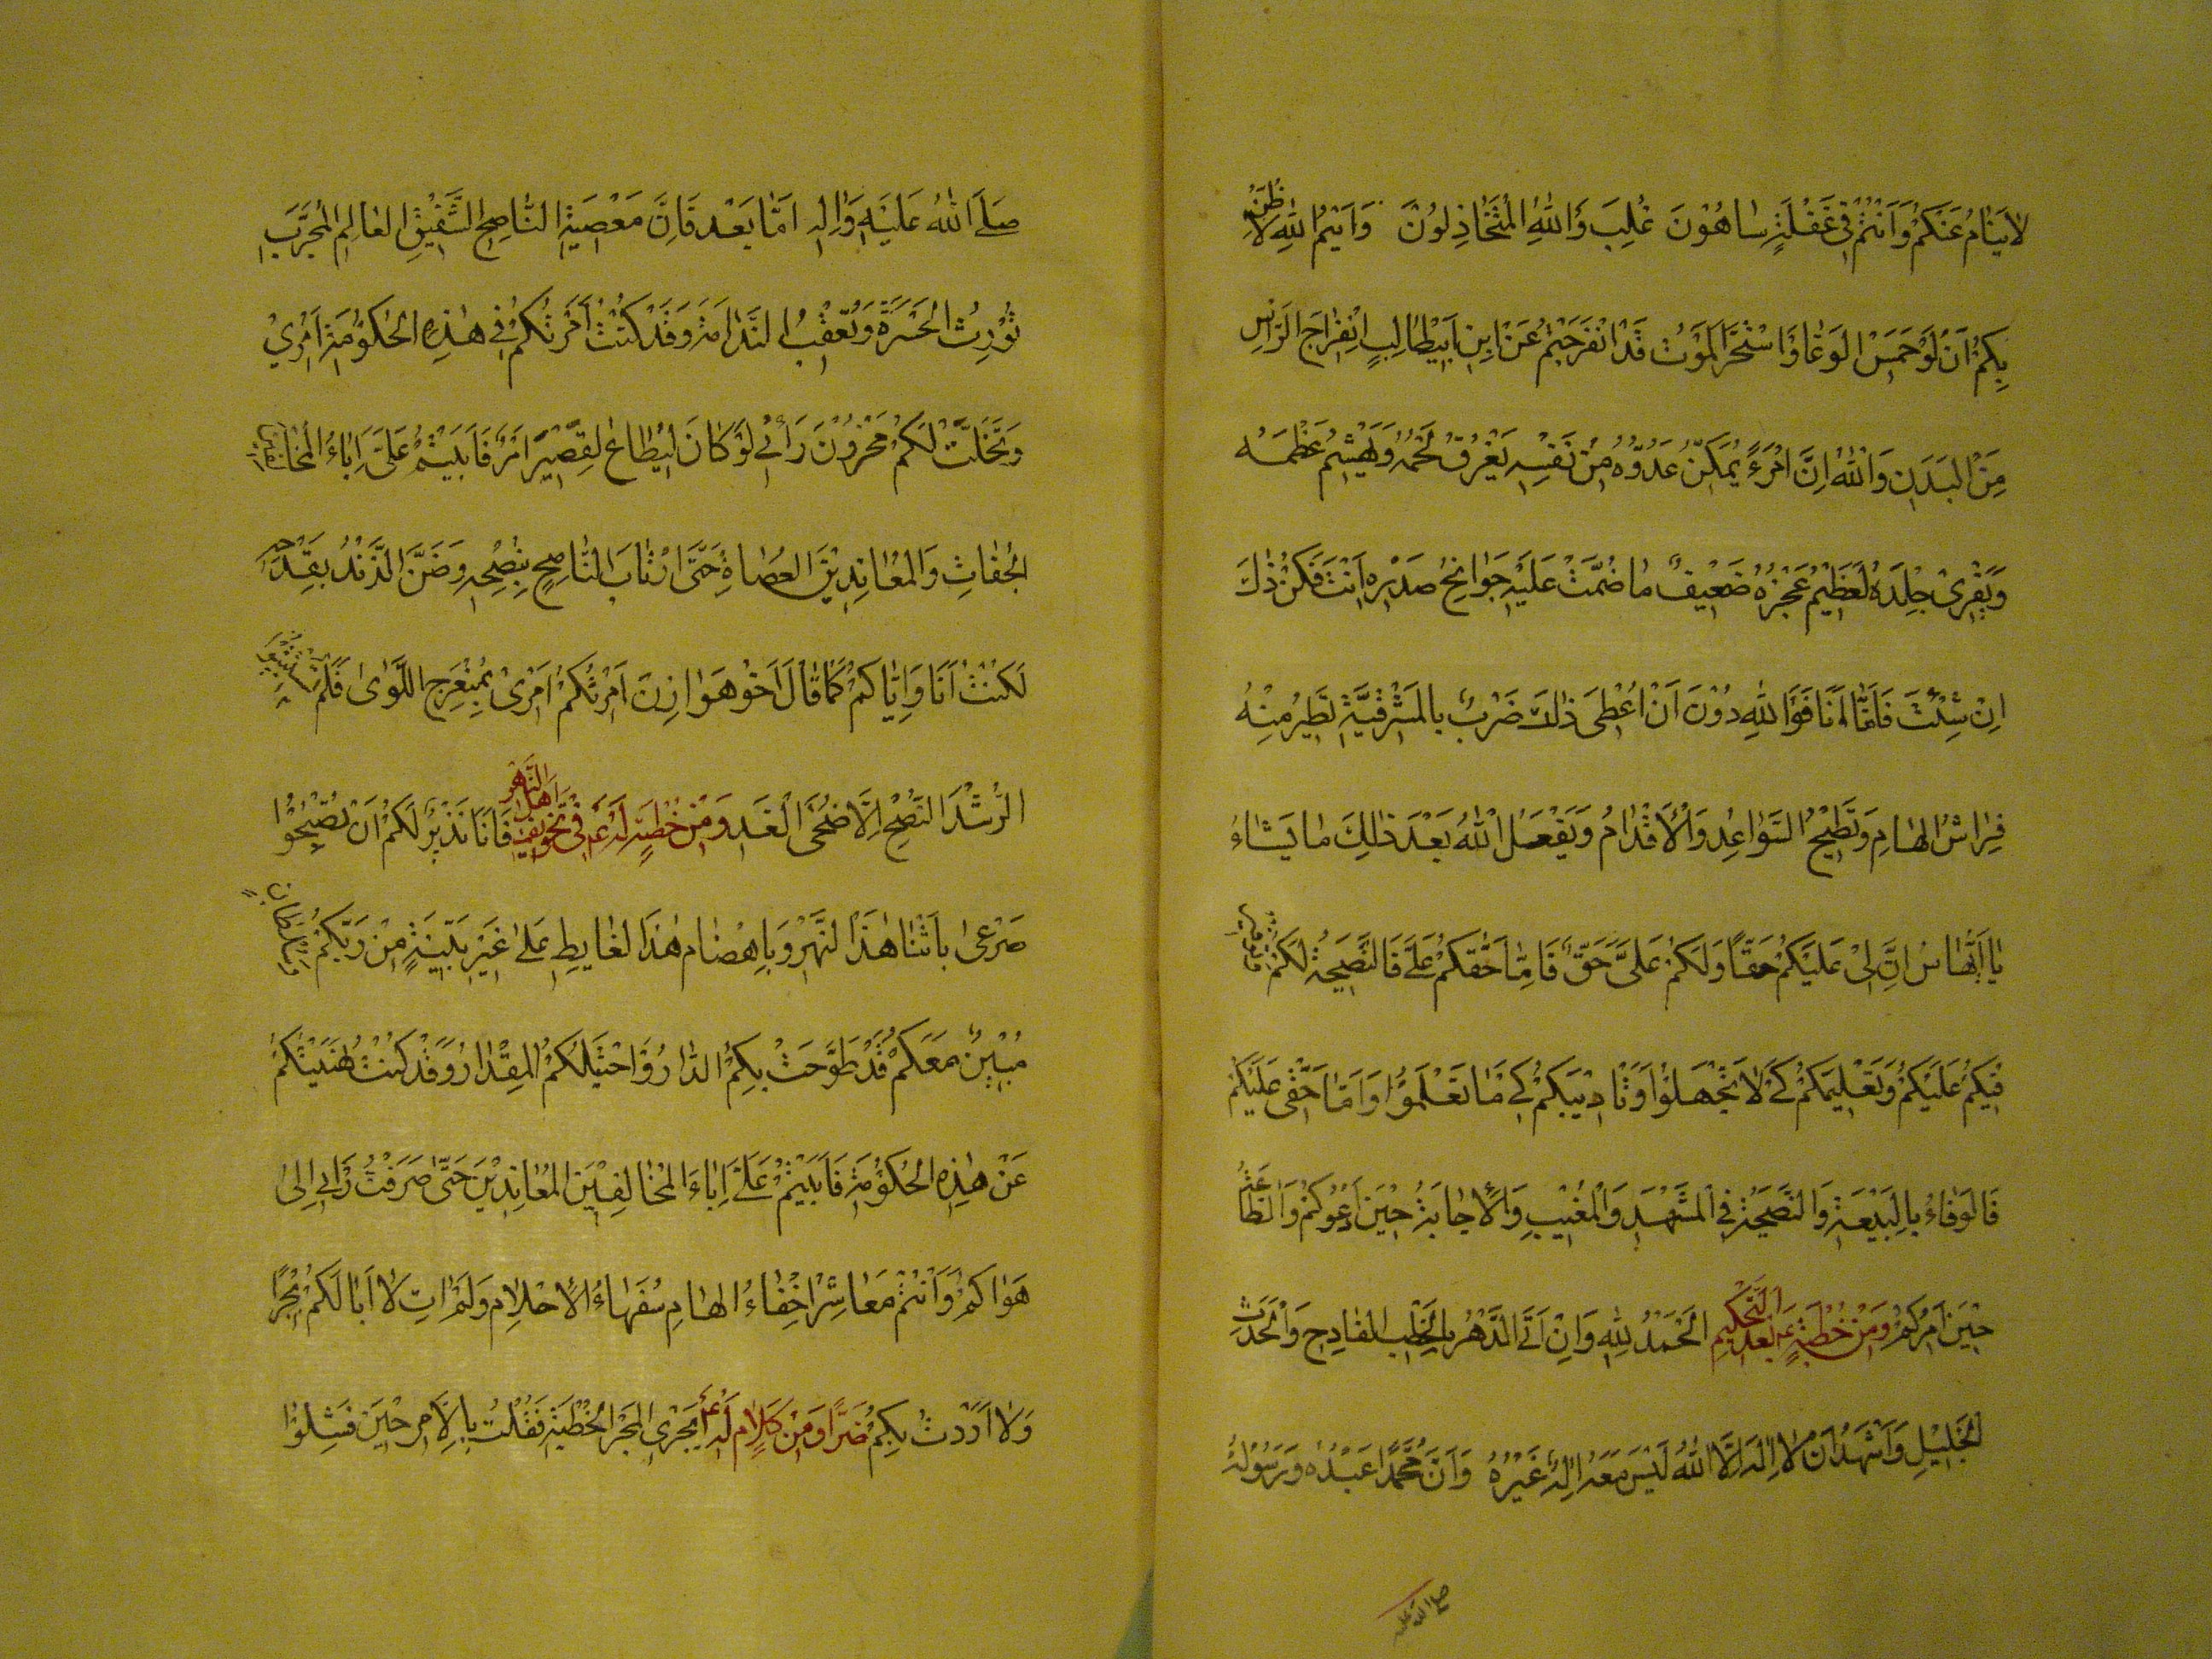 لَا يَنَامُ عَنْكُمْ وَاَنْتُمْ فِي غَفْلَةٍ سَاهُوْنَ غُلِبَ وَاللهِ الْمُتَخَاذِلُونَ وَاَيْمُ اللهِ لَاَظُنُّ
بِكُمْ اَنْ لَوْ حَمِسَ الْوَغَا وَاسْتَحَرَّ الْمَوْتُ قَدِ انْفَرَجْتُمْ عَنِ ابْنِ اَبِيْطَالِبٍ اِنْفِرَاجَ الرَّاْسِ
مِنَ الْبَدَنِ وَاللهِ اِنَّ امْرَءً يُمَكِّنُ عَدُوَّهُ مِنْ نَفْسِهِ يَعْرُقُ لَحْمَهُ وَيَهْشِمُ عَظْمَهُ
وَيَفْرِيْ جِلْدَهُ لَعَظِيْمٌ عَجْزُهُ ضَعِيْفٌ مَا ضُمَّتْ عَلَيْهِ جَوَانِحُ صَدْرِهِ اَنْتَ فَكُنْ ذٰلِكَ
اِنْ شِئْتَ فَاَمَّا اَنَا فَوَاللهِ دُوْنَ اَنْ اُعْطِيَ ذٰلِكَ ضَرْبٌ بِالْمَشْرَفِيَّةِ تَطِيْرُ مِنْهُ
فِرَاشُ الْهَامِ وَتَطِيْحُ السَّوَاعِدُ وَالْاَقْدَامُ وَيَفْعَلُ اللهُ بَعْدَ ذٰلِكَ مَا يَشَاءُ
يَا اَيُّهَا النَّاسُ اِنَّ لِيْ عَلَيْكُمْ حَقًّا وَلَكُمْ عَلَيَّ حَقٌّ فَاَمَّا حَقُّكُمْ عَلَيَّ فَالنَّصِيْحَةُ لَكُمْ وَتَوْفِيْرُ
فَيْئِكُمْ عَلَيْكُمْ وَتَعْلِيْمُكُمْ كَيْ لَا تَجْهَلُوْا وَتَاْدِيْبُكُمْ كَيْ مَا تَعْلَمُوْا وَاَمَّا حَقِّيْ عَلَيْكُمْ
فَالْوَفَاءُ بِالْبَيْعَةِ وَالنَّصِيْحَةُ فِي الْمَشْهَدِ وَالْمَغِيْبِ وَالْاِجَابَةُ حِيْنَ اَدْعُوْكُمْ وَالطَّاعَةُ
حِيْنَ اٰمُرُكُمْ وَمِنْ خُطْبَةٍ لَهُ بَعْدَ التَّحْكِيْمِ الْحَمْدُ لِلهِ وَاِنْ اَتَى الدَّهْرُ بِالْخَطْبِ الْفَادِحِ وَالْحَدَثِ
الْجَلِيْلِ وَاَشْهَدُ اَنْ لَا اِلٰهَ اِلَّا اللهُ لَيْسَ مَعَهُ اِلٰهٌ غَيْرُهُ وَاَنَّ مُحَمَّدًا عَبْدُهُ وَرَسُوْلُهُ
صلى الله عليه
صَلَّى اللهُ عَلَيْهِ وَاٰلِهِ اَمَّا بَعْدُ فَاِنَّ مَعْصِيَةَ النَّاصِحِ الشَّفِيْقِ الْعَالِمِ الْمُجَرِّبِ
تُوْرِثُ الْحَسْرَةَ وَتُعَقِّبُ النَّدَامَةَ وَقَدْ كُنْتُ اَمَرْتُكُمْ فِي هٰذِهِ الْحُكُوْمَةِ اَمْرِيْ
وَنَخَلْتُ لَكُمْ مَخْزُوْنَ رَاْئِي لَوْ كَانَ يُطَاعُ لِقَصِيْرٍ اَمْرٌ فَاَبَيْتُمْ عَلَيَّ اِبَاءَ الْمُخَالِفِيْنَ
الْجُفَاةِ وَالْمُعَانِدِيْنَ الْعُصَاةِ حَتَّى ارْتَابَ النَّاصِحُ بِنُصْحِهِ وَضَنَّ الزَّنْدُ بِقَدْحِهِ
لَكُنْتُ اَنَا وَاِيَّاكُمْ كَمَا قَالَ اَخُوْ هَوَازِنَ اَمَرْتُكُمْ اَمْرِيْ بِمُنْعَرِجِ اللِّوٰى فَلَمْ تَسْتَبِيْنُوا
الرُّشْدَ النُّصْحَ اِلَّا ضُحَى الْغَدِ وَمِنْ خُطْبَةٍ لَهُ ع فِي تَخْوِيْفِ اَهْلِ النَّهْرِ فَاَنَا نَذِيْرٌ لَكُمْ اَنْ تُصْبِحُوْا
صَرْعٰى بِاَثْنَا هٰذَا النَّهْرِ وَبِاَهْضَامِ هٰذَا الْغَايِطِ عَلٰى غَيْرِ بَيِّنَةٍ مِنْ رَبِّكُمْ وَلَا سُلْطَانٍ
مُبِيْنٍ مَعَكُمْ قَدْ طَوَّحَتْ بِكُمُ الدَّارُ وَاحْتَبَلَكُمُ الْمِقْدَارُ وَقَدْ كُنْتُ نَهَيْتُكُمْ
عَنْ هٰذِهِ الْحُكُوْمَةِ فَاَبَيْتُمْ عَلَيَّ اِبَاءَ الْمُخَالِفِيْنَ الْمُعَانِدِيْنَ حَتّٰى صَرَفْتُ رَاْيِي اِلٰى
هَوَاكُمْ وَاَنْتُمْ مَعَاشِرُ اَخِفَّاءُ الْهَامِ سُفَهَاءُ الْاَحْلَامِ وَلَمْ اٰتِ لَا اَبَا لَكُمْ بُجْرًا
وَلَا اَرَدْتُ بِكُمْ ضَرًّا وَمِنْ كَلَامٍ لَهُ ع يَجْرِيْ مَجْرَى الْخُطْبَةِ فَقُمْتُ بِالْاَمْرِ حِيْنَ فَشِلُوْا